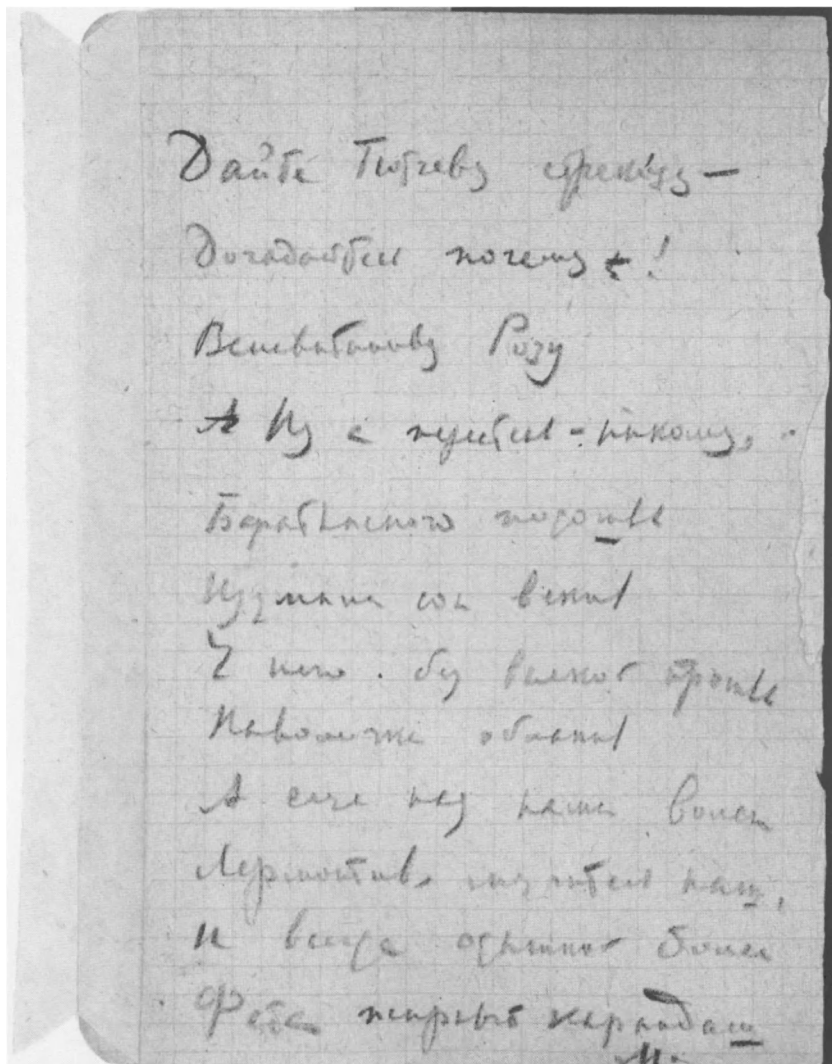 Дайте Тютчеву стрекозу —
Догадайтесь почему!
Веневитинову Розу
Ну а перстень - никому.
Баратынского подошвы
Изумили сон веков
У него без всякой прошвы
Наволочки облаков
А еще над нами волен
Лермонтов, мучитель наш,
И всегда одышкой болен
Фета жирный карандаш
М.